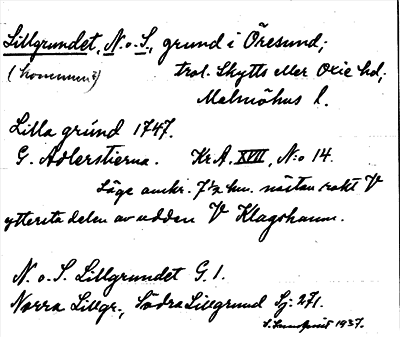 Lillgrundet, N. o. S., grund i Öresund;
(kommun?) trol. Skytts eller Oxie hd,
Malmöhus l.
Lilla grund 1747.
G. Adlerstierna. Kr.A. XVII, N:o 14.
Läge omkr. 7½ km. nästan rakt V
yttersta delen av udden V Klagshamn.
N. o. S. Lillgrundet G. 1.
Norra Lillgr., Södra Lillgrund Sj: 271.
1937.